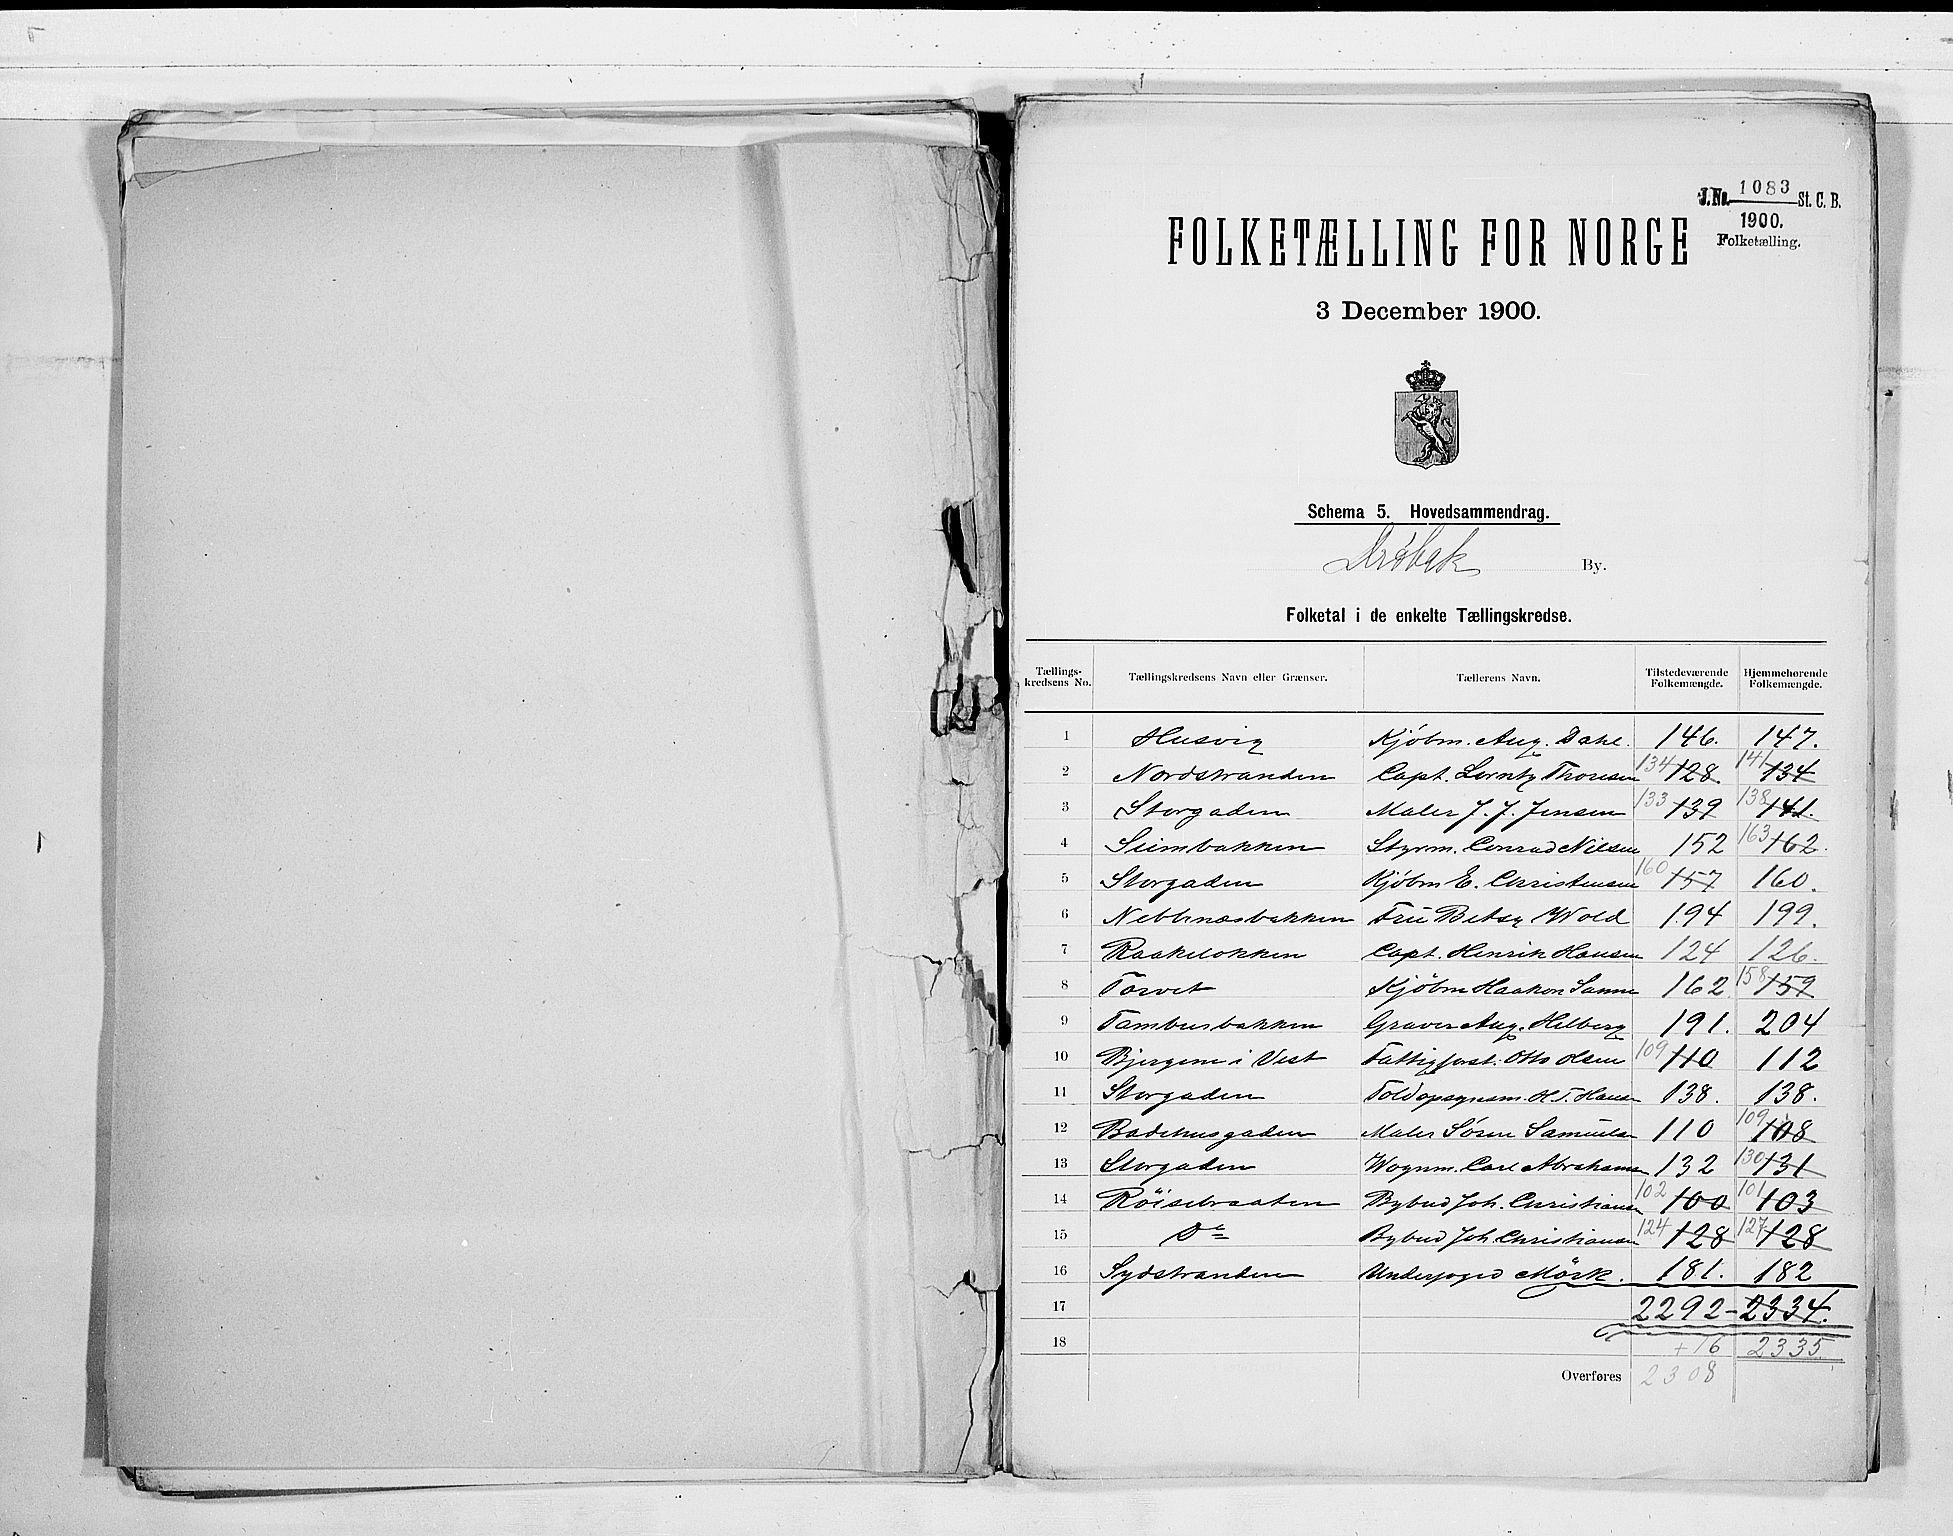 J. No. 1083 St. C. B.
1900.
Folketælling.
FOLKETÆLLING FOR NORGE
3 December 1900.
Schema 5. Hovedsammendrag.
Drøbak By.
Folketal i de enkelte Tællingskredse.
Tællings-kredsens No. Tællingskredsens Navn eller Grænser. Tællerens Navn. Tilstedeværende Folkemængde. Hjemmehørende Folkemængde.
1 Husvig Kjøbm. Aug. Dahl. 146. 147.
2 Nordstranden Capt. Lorntz Thoresen 134 128. 141 134
3 Storgaden Maler J. J. Jensen 133 139 138 141.
4 Styrm. Conrad Nilsen 152 163 162.
5 Storgaden Kjøbm E. Christensen 160 157 160.
6 Nebbnæsbakken Fru Betsy Wold 194 199.
7 Raakeløkken Capt. Henrik Hansen 124 126.
8 Torvet Kjøbm Haakon Sanne 162 158 159
9 Tambursbakken Graver Aug. Hilberg 191. 204
10 Bjergene i Vest Fattigforst. Otto Olsen 109 110 112
11 Storgaden Toldopsynsm. H. T. Hansen 138. 138.
12 Badehusgaden Maler Sören Samuelsen 110 109 108
13 Storgaden Vognm. Carl Abrahamsen 132 130 131
14 Röisebraaten Bybud Joh. Christiansen 102 100 101 103
15 Do Bybud Joh. Christiansen 124 128 127 128
16 Sydstranden Underfoged Mörk. 181. 182
17 2292 - 2334.
18 + 16 2335
Overføres 2308